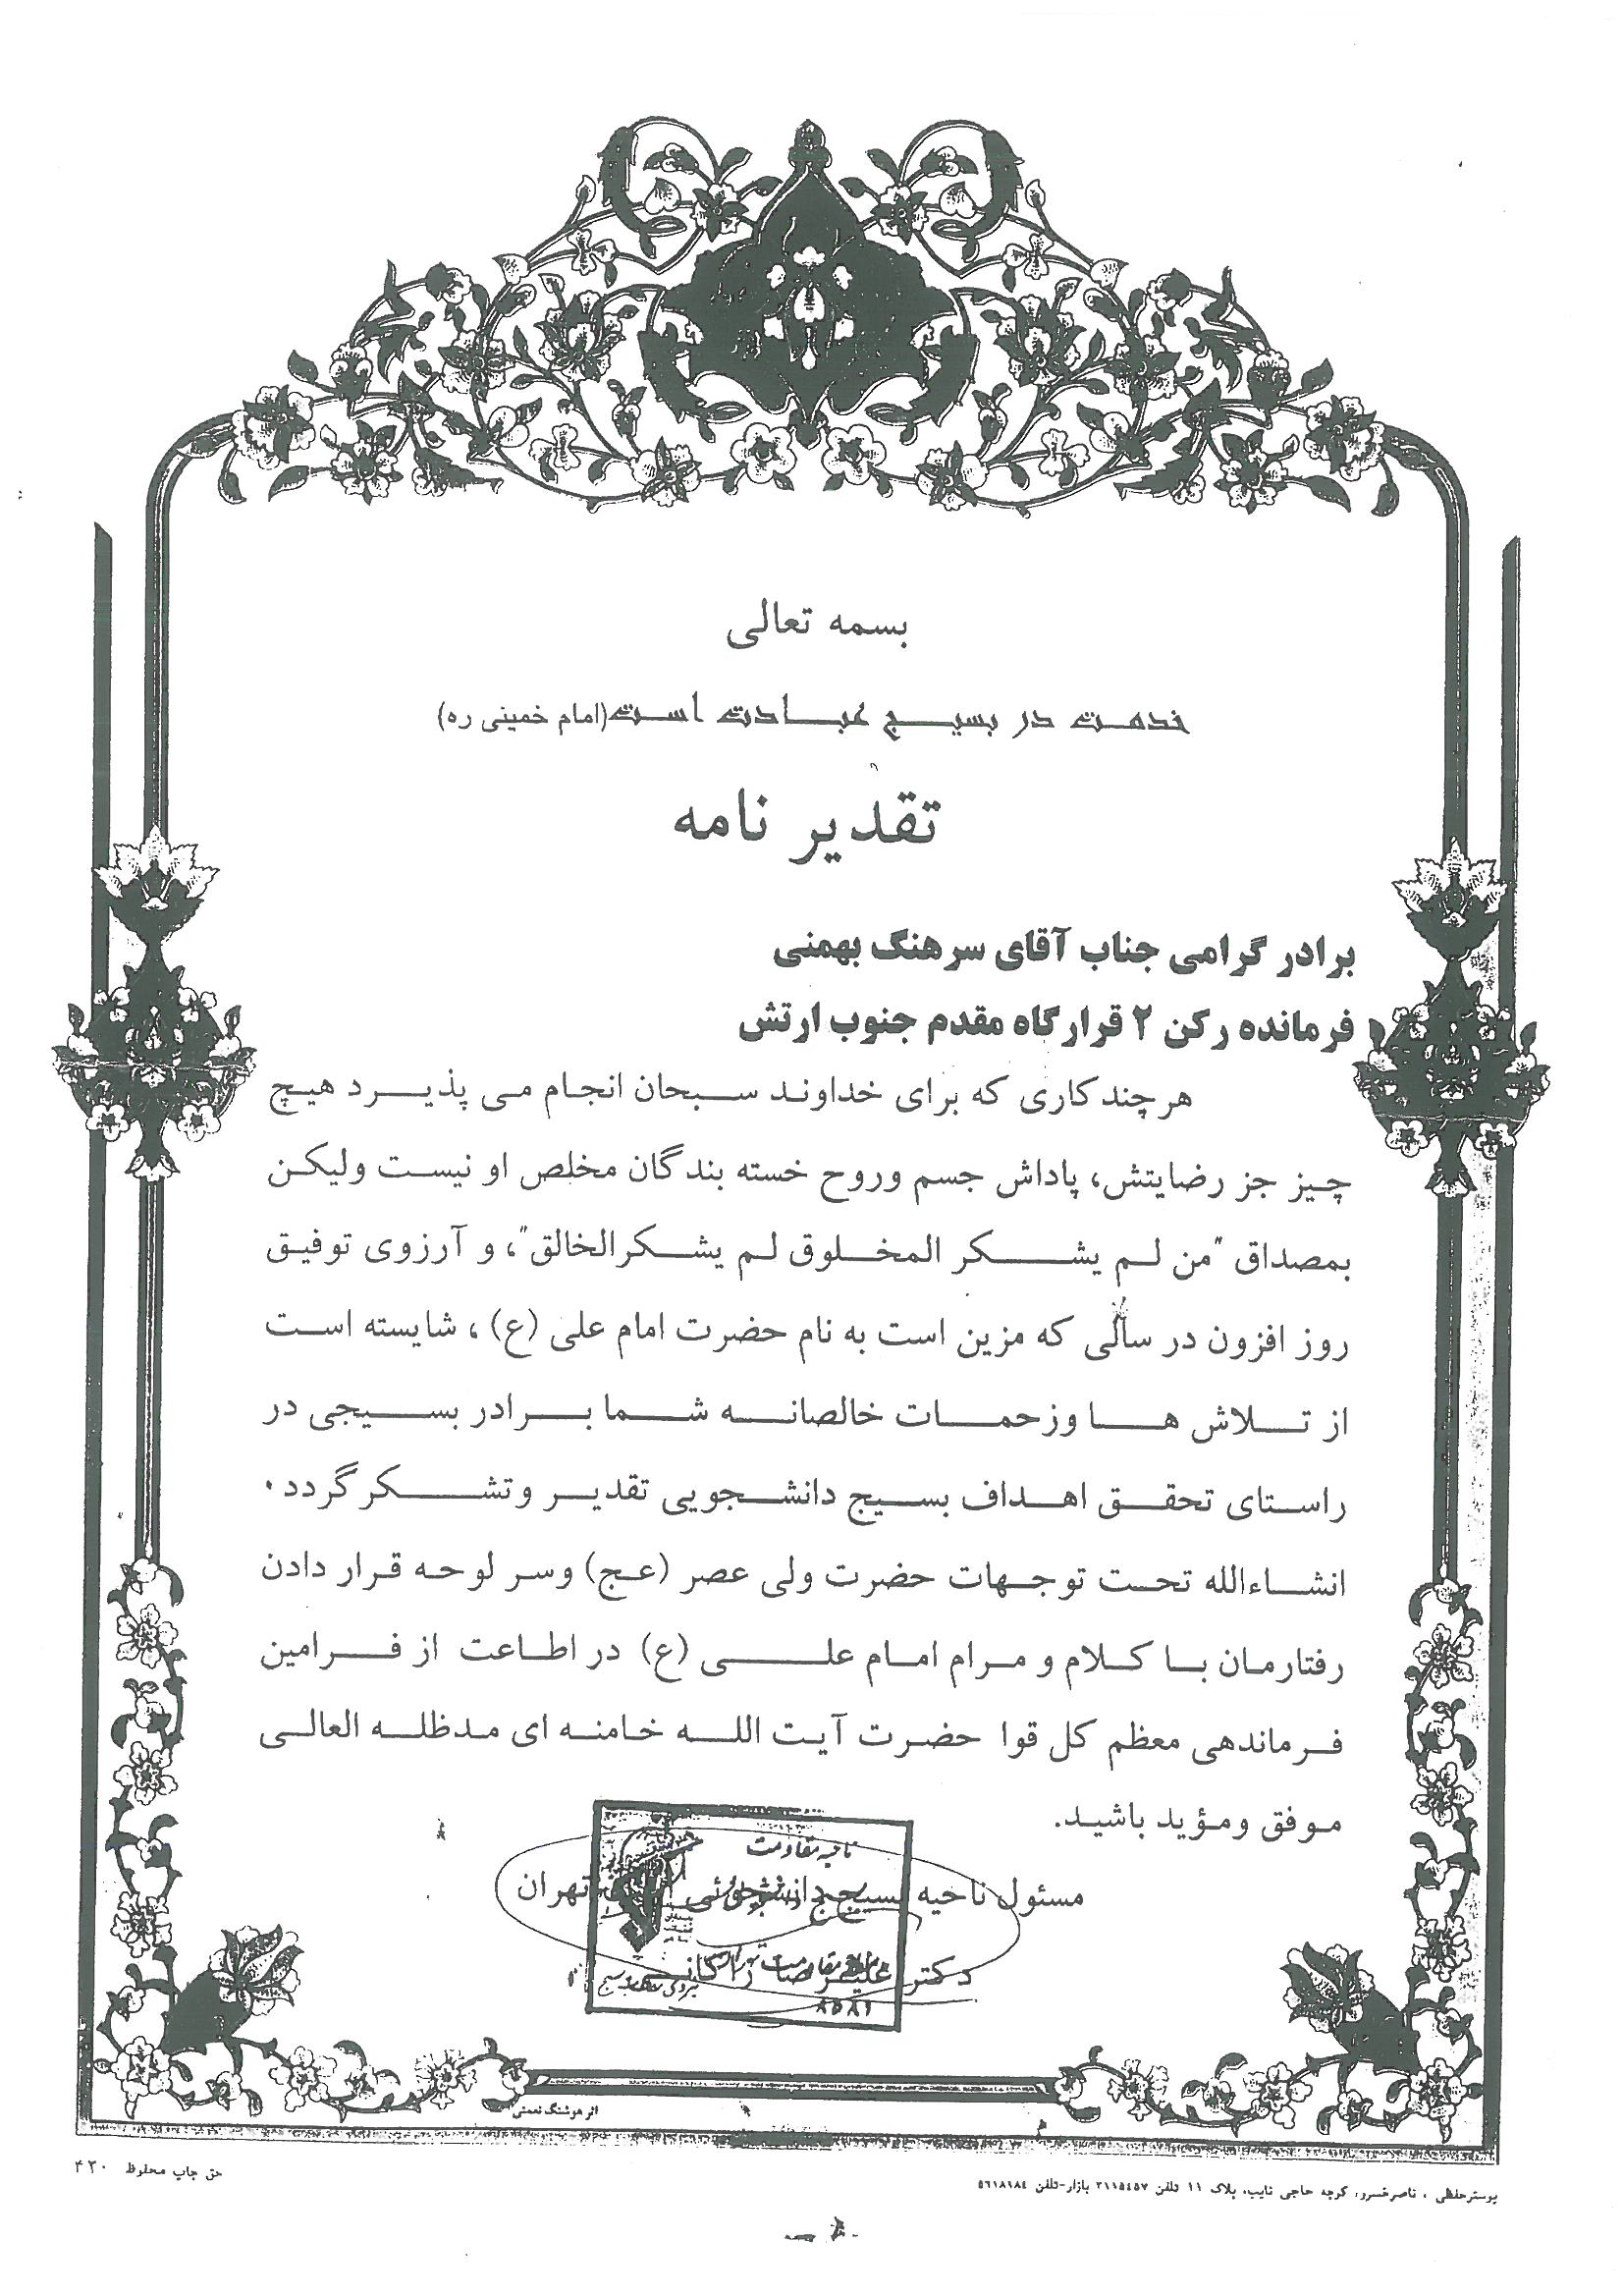 بسمه تعالی
خدمت در بسیج عبادت است(امام خمینی ره)
تقدیر نامه
برادر گرامی جناب آقای سرهنگ بهمنی
فرمانده رکن ۲ قرارگاه مقدم جنوب ارتش
هرچند کاری که برای خداوند سبحان انجام می پذیرد هیچ
چیز جز رضایتش، پاداش جسم وروح خسته بندگان مخلص او نیست ولیکن
بمصداق "من لم یشکر المخلوق لم یشکرالخالق"، و آرزوی توفیق
روز افزون در سالی که مزین است به نام حضرت امام علی (ع) ، شایسته است
از تلاش ها وزحمات خالصانه شما برادر بسیجی در
راستای تحقق اهداف بسیج دانشجویی تقدیر وتشکر گردد.
انشاءالله تحت توجهات حضرت ولی عصر (عج) وسر لوحه قرار دادن
رفتارمان با کلام و مرام امام علی (ع) در اطاعت از فرامین
فرماندهی معظم کل قوا حضرت آیت الله خامنه ای مدظله العالی
موفق ومؤید باشید.
ناحیه مقاومت
مسئول ناحیه بسیج دانشجوئی تهران
دکتر علیرضا زاکانی
اثر هوشنگ نعمتی
حق چاپ محفوظ ۴۲۰
ناصرخسرو، کوچه حاجی نایب، پلاک ۱۱ تلفن ۳۱۱۵۴۵۷ بازار-تلفن ۵۶۱۸۱۸۴